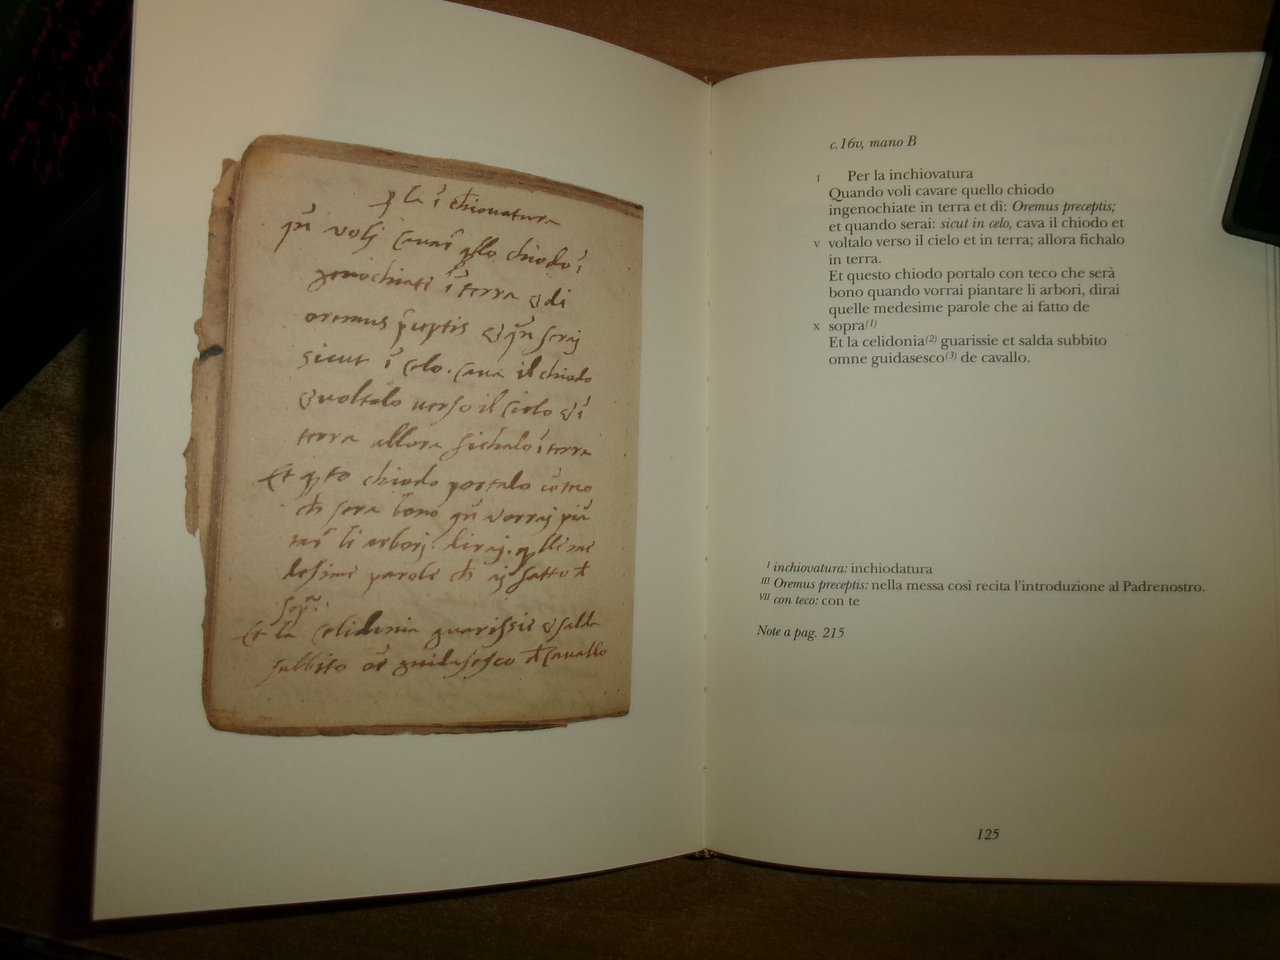 ꝑ la ī chiovatura
qñ volj cavar̄ q̃llo chiodo ī
genochiate ī terra & di
oremus p̄ceptis & qñ seraj
sicut ī celo. cava il chiodo
& voltalo verso il cielo & ī
terra allora fichalo ī terra
Et q̄sto chiodo portalo cō teco
ch̄ sera bono qñ vorraj piā
tar̄ li arborj. diraj. q̃lle me
desime parole ch̄ aj fatto đ
sopª.
Et la celidonia guarissie & salda
subbito oē guidasesco đ cavallo
c.16v, mano B
I Per la inchiovatura
Quando voli cavare quello chiodo
ingenochiate in terra et di: Oremus preceptis;
et quando serai: sicut in celo, cava il chiodo et
V voltalo verso il cielo et in terra; allora fichalo
in terra.
Et questo chiodo portalo con teco che serà
bono quando vorrai piantare li arbori, dirai
quelle medesime parole che ai fatto de
X sopra(1)
Et la celidonia(2) guarissie et salda subbito
omne guidasesco(3) de cavallo.
I inchiovatura: inchiodatura
III Oremus preceptis: nella messa così recita l'introduzione al Padrenostro.
VII con teco: con te
Note a pag. 215
125